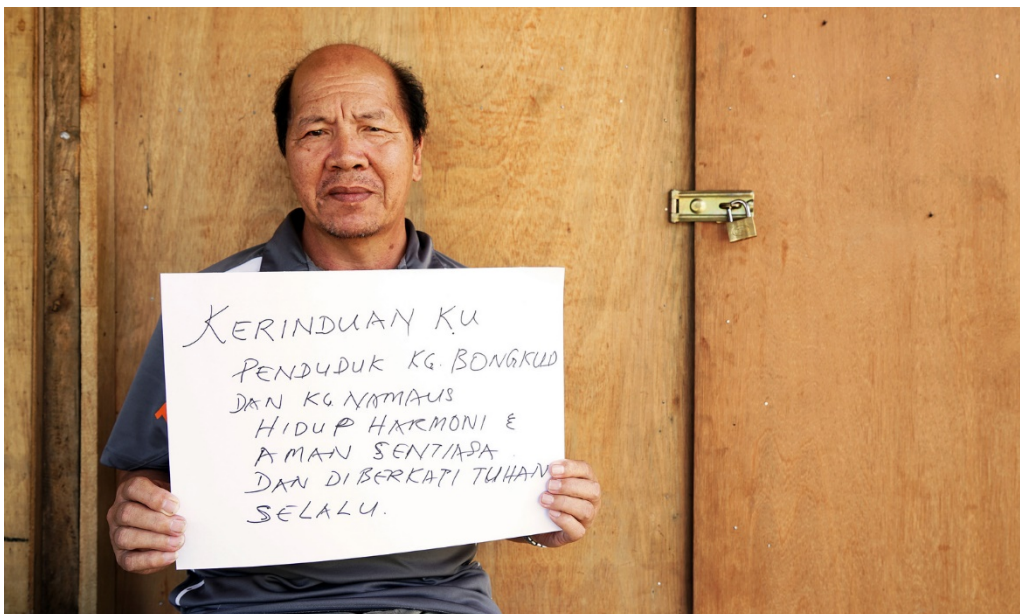 KERINDUAN KU
PENDUDUK KG. BONGKUD
DAN KG NAMAUS
HIDUP HARMONI &
AMAN SENTIASA.
DAN DIBERKATI TUHAN
SELALU.